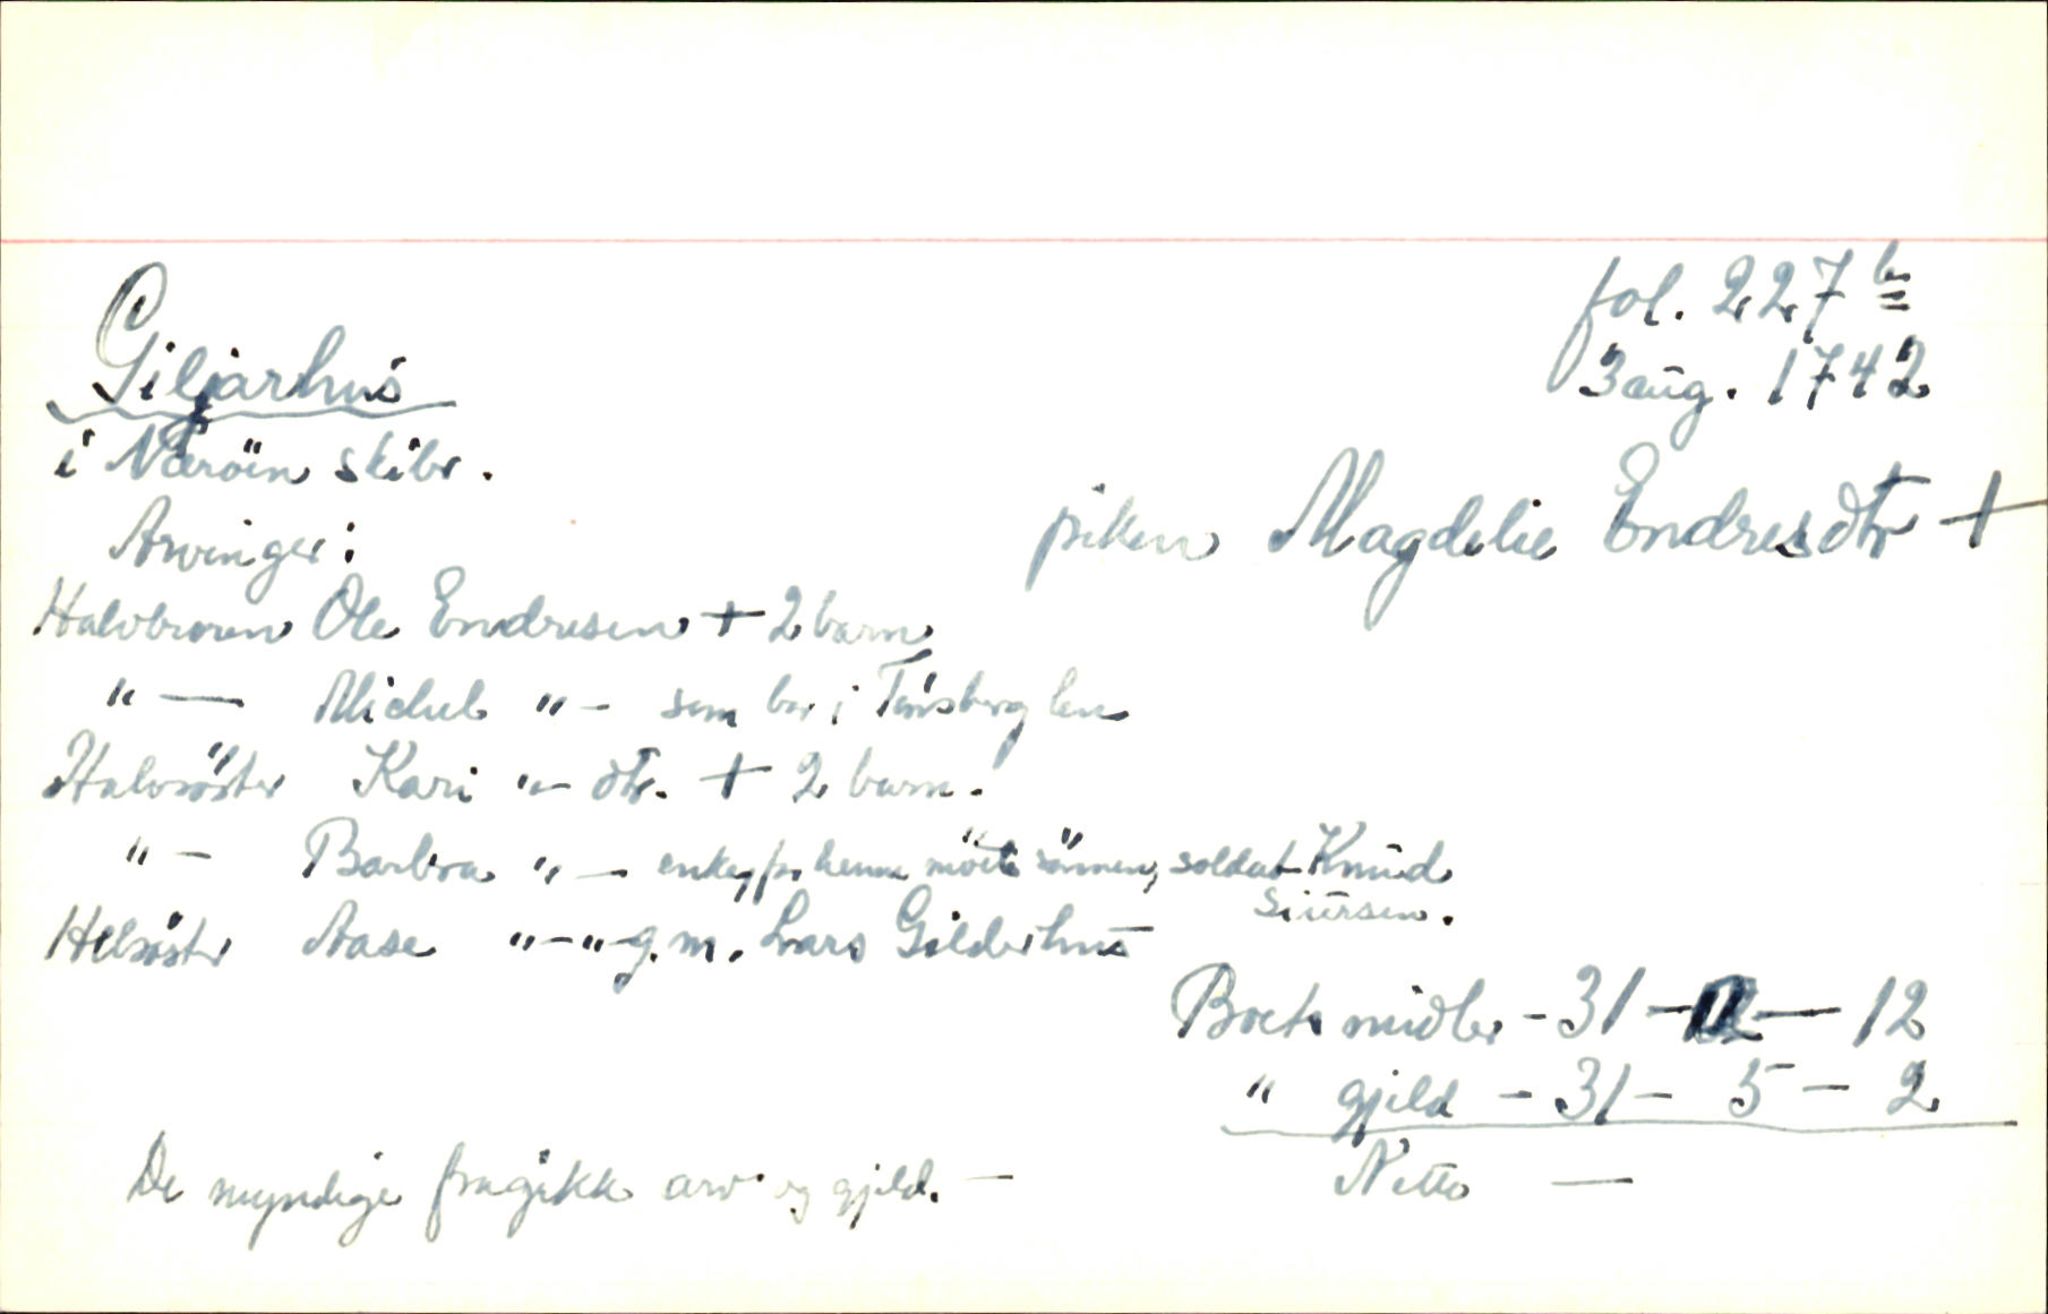 fol. 227 b
Giljarhus
3 aug. 1742
i Nærøen skibr.
piken Magdelie Endresdtr +
Arvinger:
Halvbroren Ole Endresen + 2 barn
"— Michel "- som bor i Tønsberg len
Halvsöster Kari "- dtr. + 2 barn.
"- Barbra "- enke, for henne mötte sönnen, soldat Knud
Siursen.
Helsöster Aase "-"- g.m. Lars Gilderhus
Boets midler - 31 - — 12
" gjeld - 31 - 5 - 2
De myndige fragikk arv og gjeld. —
Netto —